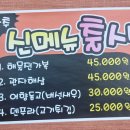 신메뉴
1. 해물덴가복 45.000원
2. 관다해삼 40.000원
3. 어향동고(배섯새우) 30.000원
4. 덴푸라(고기튀김) 25.000원